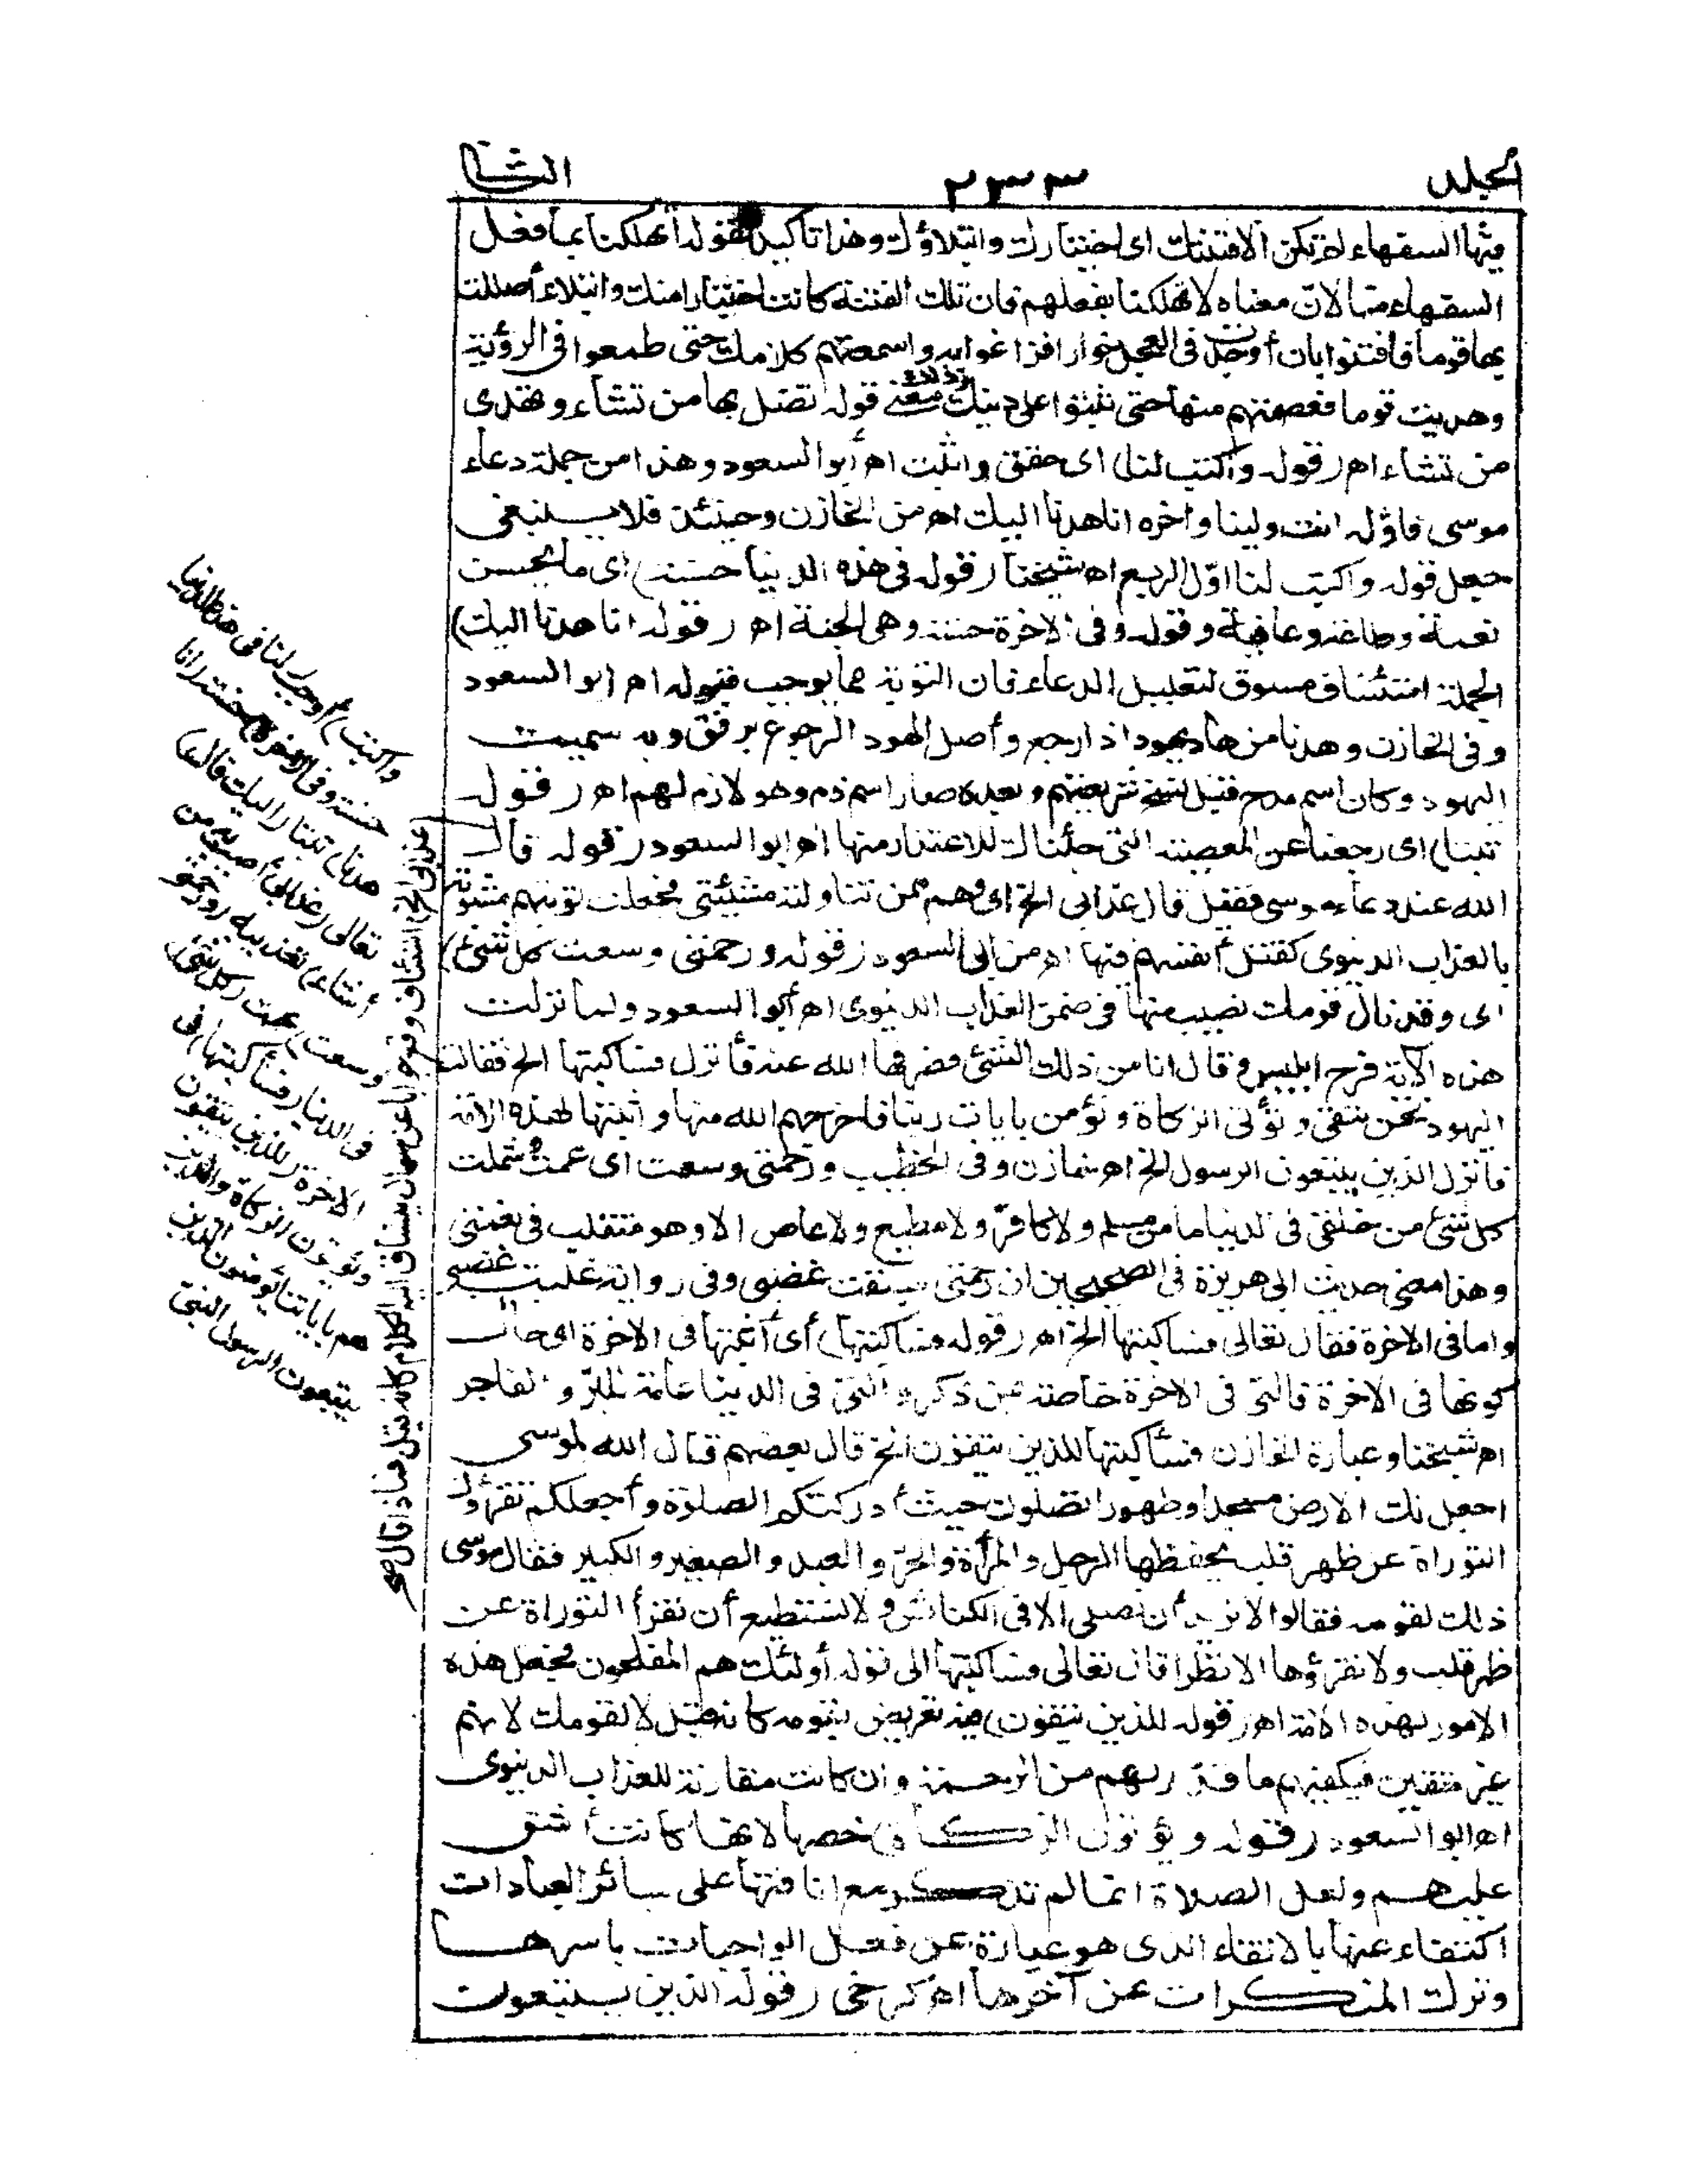 الجلد ٢٣٣ الثانى
فيها السفهاء لم تكن الا فتنتك اى اختبارك وابتلاؤك وهذا تأكيد لقوله أتهلكنا بما فعل
السفهاء منا لان معناه لا تهلكنا بفعلهم فان تلك الفتنة كانت اختبارا منك وابتلاء أضللت
بها قوما فافتتنوا بان أوجدت فى العجل خوارا فزاغوا به واسمعتهم كلامك حتى طمعوا فى الرؤية
وهديت قوما فعصمتهم منها حتى ثبتوا على دينك وذلك معنى قوله تضل بها من تشاء وتهدى
من تشاء اه (قوله واكتب لنا) اى حقق واثبت اه أبو السعود وهذا من جملة دعاء
موسى فاوله انت ولينا واخره انا هدنا اليك اه من الخازن وحينئذ فلا ينبغى
جعل قوله واكتب لنا اول الربع اه شيخنا (قوله فى هذه الدنيا حسنة) اى ما يحسن
نعمة وطاعة وعافية وقوله وفى الاخرة حسنة وهى الجنة اه (قوله انا هدنا اليك)
الجملة استئناف مسوق لتعليل الدعاء فان التوبة مما يوجب قبوله اه ابو السعود
وفى الخازن وهدنا من هاد يهود اذا رجع وأصل الهود الرجوع برفق وبه سميت
اليهود وكان اسم مدح قبل نسخ شريعتهم وبعده صار اسم ذم وهو لازم لهم اه (قوله
تبنا) اى رجعنا عن المعصية التى جئناك للاعتذار منها اه ابو السعود (قوله قال
الله عند دعاء موسى فقيل قال عذابى الخ اى وهم ممن تناولته مشيئتى فجعلت توبتهم مشوبة
بالعذاب الدنيوى كقتل أنفسهم فيها اه من ابى السعود (قوله ورحمتى وسعت كل شئ)
اى وقد نال قومك نصيب منها فى ضمن العذاب الدنيوى اه أبو السعود ولما نزلت
هذه الآية فرح ابليس وقال انا من ذلك الشئ فصرفها الله عنه فأنزل فسأكتبها الخ فقالت
اليهود نحن نتقى ونؤتى الزكاة ونؤمن بايات ربنا فاخرجهم الله منها واثبتها لهذه الامة
فانزل الذين يتبعون الرسول الخ اه خازن وفى الخطيب ورحمتى وسعت اى عمت وشملت
كل شئ من خلقى فى الدنيا ما من مسلم ولا كافر ولا مطيع ولا عاص الا وهو متقلب فى نعمتى
وهذا معنى حديث ابى هريرة فى الصحيحين ان رحمتى سبقت غضبى وفى رواية غلبت غضبى
واما فى الاخرة فقال تعالى فسأكتبها الخ اه (قوله فسأكتبها) أى أثبتها فى الاخرة اى حال
كونها فى الاخرة فالتى فى الاخرة خاصة بمن ذكر والتى فى الدنيا عامة للبر والفاجر
اه شيخنا وعبارة الخازن فسأكتبها للذين يتقون الخ قال بعضهم قال الله لموسى
اجعل لك الارض مسجدا وطهورا تصلون حيث أدركتكم الصلوة وأجعلكم تقرؤن
التوراة عن ظهر قلب يحفظها الرجل والمرأة والحر والعبد والصغير والكبير فقال موسى
ذلك لقومه فقالوا لا نريد أن نصلى الا فى الكنائس ولا نستطيع أن نقرأ التوراة عن
ظهر قلب ولا نقرؤها الا نظرا قال تعالى فسأكتبها الى قوله أولئك هم المفلحون فجعل هذه
الامور لهذه الامة اه (قوله للذين يتقون) فيه تعريض بقومه كانه قيل لا لقومك لانهم
غير متقين فيكفيهم ما قدر لهم من الرحمة وان كانت مقارنة للعذاب الدنيوى
اه ابو السعود (قوله ويؤتون الزكاة) خصها لانها كانت أشق
عليهم ولعل الصلاة انما لم تذكر مع انافتها على سائر العبادات
اكتفاء عنها بالاتقاء الذى هو عبارة عن فعل الواجبات باسرها
وترك المنكرات عن آخرها اه كرخى (قوله الذين يتبعون
واكتب) أوجب (لنا فى هذه الدنيا
حسنة وفى الاخرة) حسنة (انا
هدنا) تبنا (اليك قال)
تعالى (عذابى أصيب به من
أشاء) تعذيبه (ورحمتى
وسعت) عمت (كل شئ)
فى الدنيا (فسأكتبها) فى
الاخرة (للذين يتقون
ويؤتون الزكاة والذين
هم باياتنا يؤمنون الذين
يتبعون الرسول النبى
عذابى الخ) استئناف وقع جوابا عن سؤال ينساق اليه الكلام كانه قيل فماذا قال صح